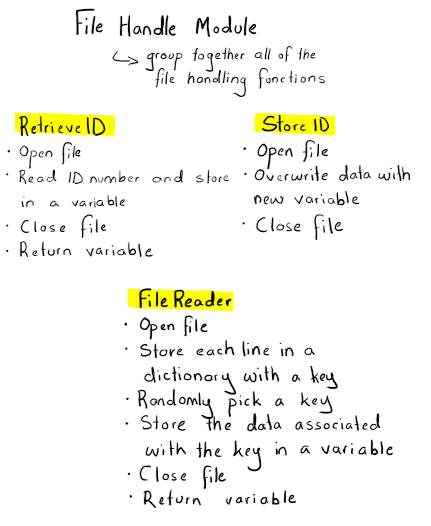 File Handle Module
↳ group together all of the
file handling functions
Retrieve ID
· Open file
· Read ID number and store
in a variable
· Close file
· Return variable
Store ID
· Open file
· Overwrite data with
new variable
· Close file
File Reader
· Open file
· Store each line in a
dictionary with a key
· Randomly pick a key
· Store the data associated
with the key in a variable
· Close file
· Return variable